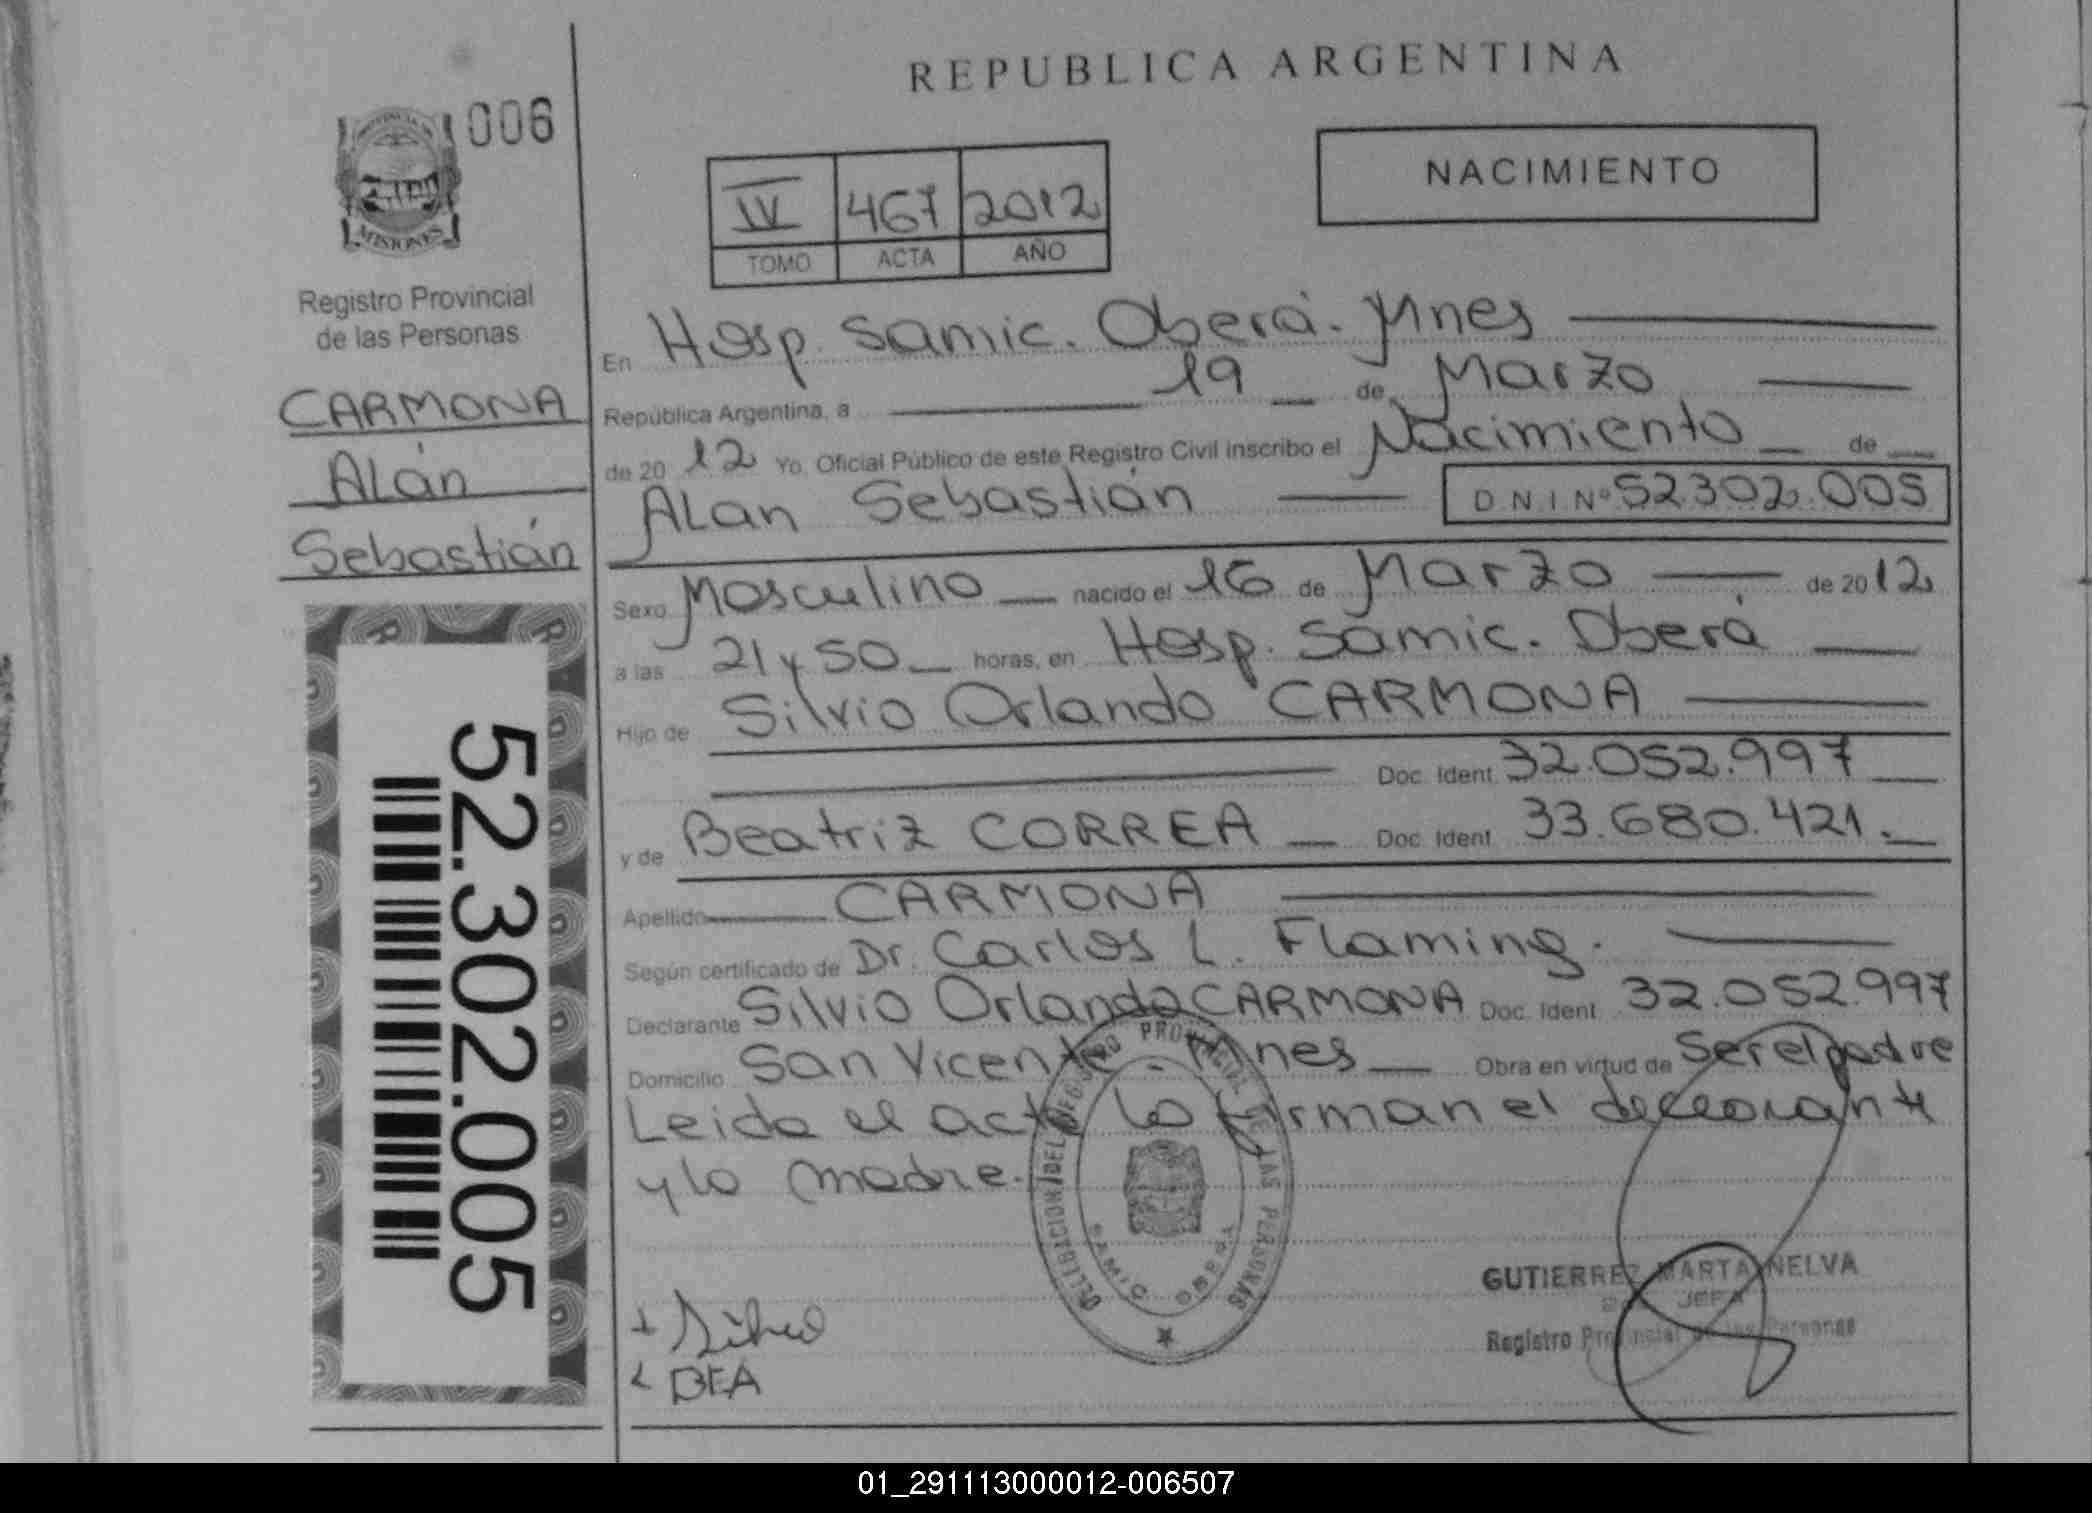 REPUBLICA ARGENTINA
006
PROVINCIA DE
MISIONES
Registro Provincial
de las Personas
CARMONA
ALán
Sebastián
52.302.005
IV 467 2012
TOMO ACTA AÑO
NACIMIENTO
En Hosp. Samic. Oberá. Mnes
República Argentina, a 19 de Marzo
de 20 12 Yo, Oficial Público de este Registro Civil inscribo el Nacimiento de
ALan Sebastián D N I Nº 52.302.005
Sexo Masculino nacido el 16 de Marzo de 20 12
a las 21 y 50 horas, en Hosp. Samic. Oberá
Hijo de Silvio Orlando CARMONA
Doc. Ident. 32.052.997
y de Beatriz CORREA Doc. Ident. 33.680.421.
Apellido CARMONA
Según certificado de Dr. Carlos L. Flaming.
Declarante Silvio Orlando CARMONA Doc. Ident. 32.052.997
Domicilio San Vicente - Mnes Obra en virtud de Ser el padre
Leida el acta la firman el declarante
y la madre.
DELEGACION DEL REGISTRO PROVINCIAL DE LAS PERSONAS
SAMIC OBERA
GUTIERREZ MARTA NELVA
JEFA
Registro Provincial de las Personas
Silvio
BEA
01_291113000012-006507